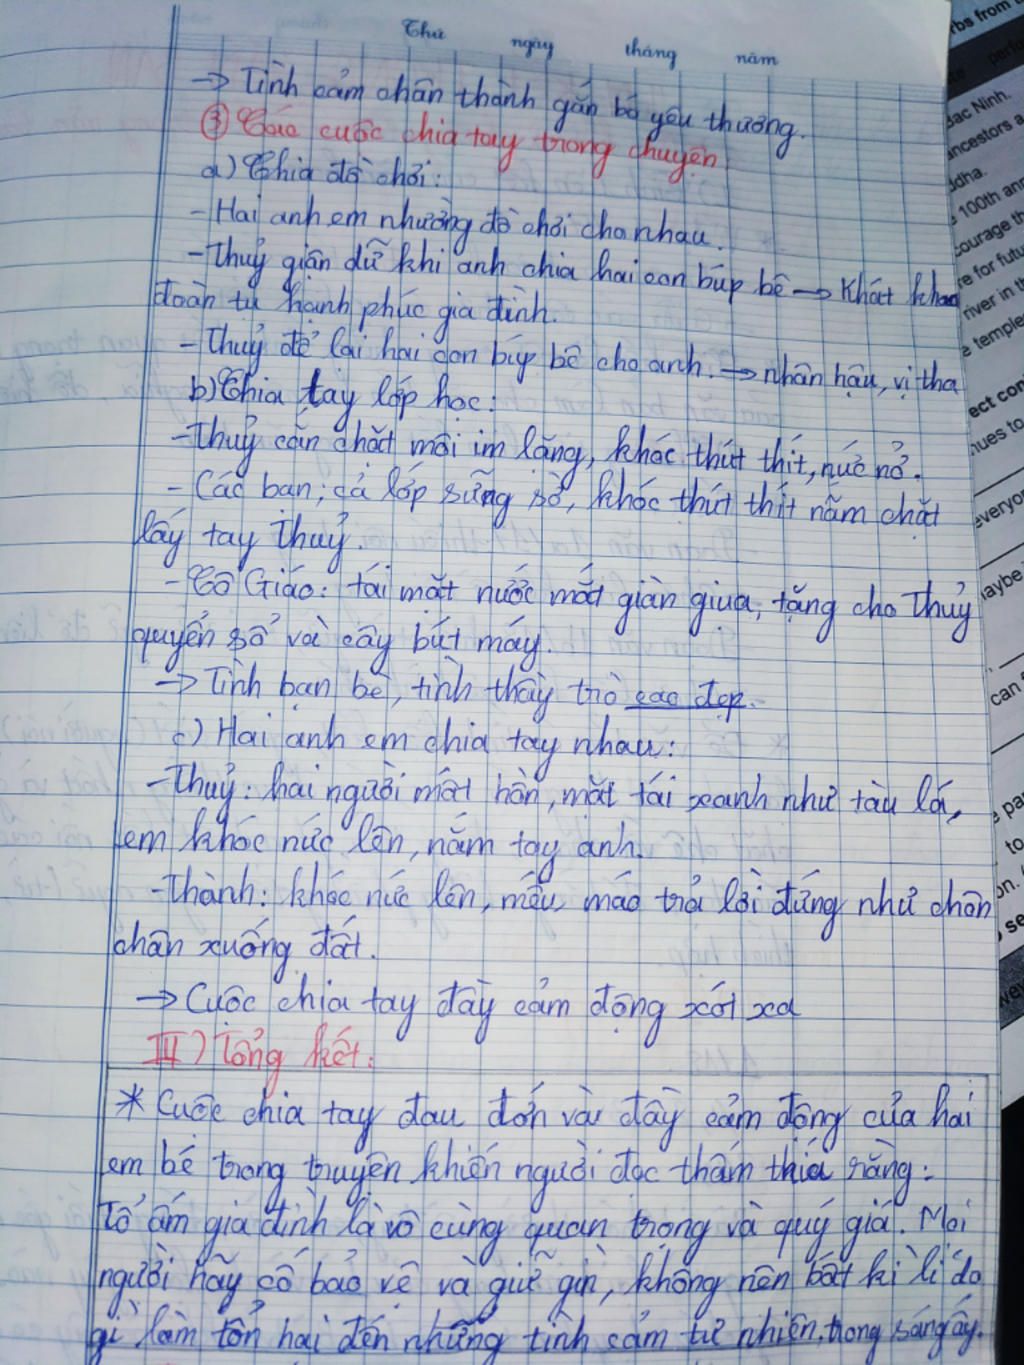 Thứ ngày tháng năm
→ Tình cảm chân thành gắn bó yêu thương.
③ Các cuộc chia tay trong chuyện
a) Chia đồ chơi:
- Hai anh em nhường đồ chơi cho nhau.
- Thuỷ giận dữ khi anh chia hai con búp bê → Khát khao
đoàn tụ hạnh phúc gia đình.
- Thuỷ để lại hai con búp bê cho anh. → nhân hậu, vị tha
b) Chia tay lớp học:
- Thuỷ cắn chặt môi im lặng, khóc thút thít, nức nở.
- Các bạn; cả lớp sững sờ, khóc thút thít nắm chặt
lấy tay Thuỷ.
- Cô Giáo: tái mặt nước mắt giàn giụa, tặng cho Thuỷ
quyển sổ và cây bút máy.
→ Tình bạn bè, tình thầy trò cao đẹp.
c) Hai anh em chia tay nhau:
- Thuỷ: hai người mất hồn, mặt tái xanh như tàu lá,
em khóc nức lên, nắm tay anh.
- Thành: khóc nức lên, mếu máo trả lời đứng như chôn
chân xuống đất.
→ Cuộc chia tay đầy cảm động xót xa
III) Tổng kết:
* Cuộc chia tay đau đớn và đầy cảm động của hai
em bé trong truyện khiến người đọc thấm thía rằng:
Tổ ấm gia đình là vô cùng quan trọng và quý giá. Mọi
người hãy cố bảo vệ và giữ gìn, không nên bất kì lí do
gì làm tổn hại đến những tình cảm tự nhiên, trong sáng ấy.
rbs from
perfo
Bac Ninh.
ancestors a
ddha.
100th ann
courage th
re for futu
river in th
e temple
ect con
nues to
everyon
maybe
can
par
to
on.
se